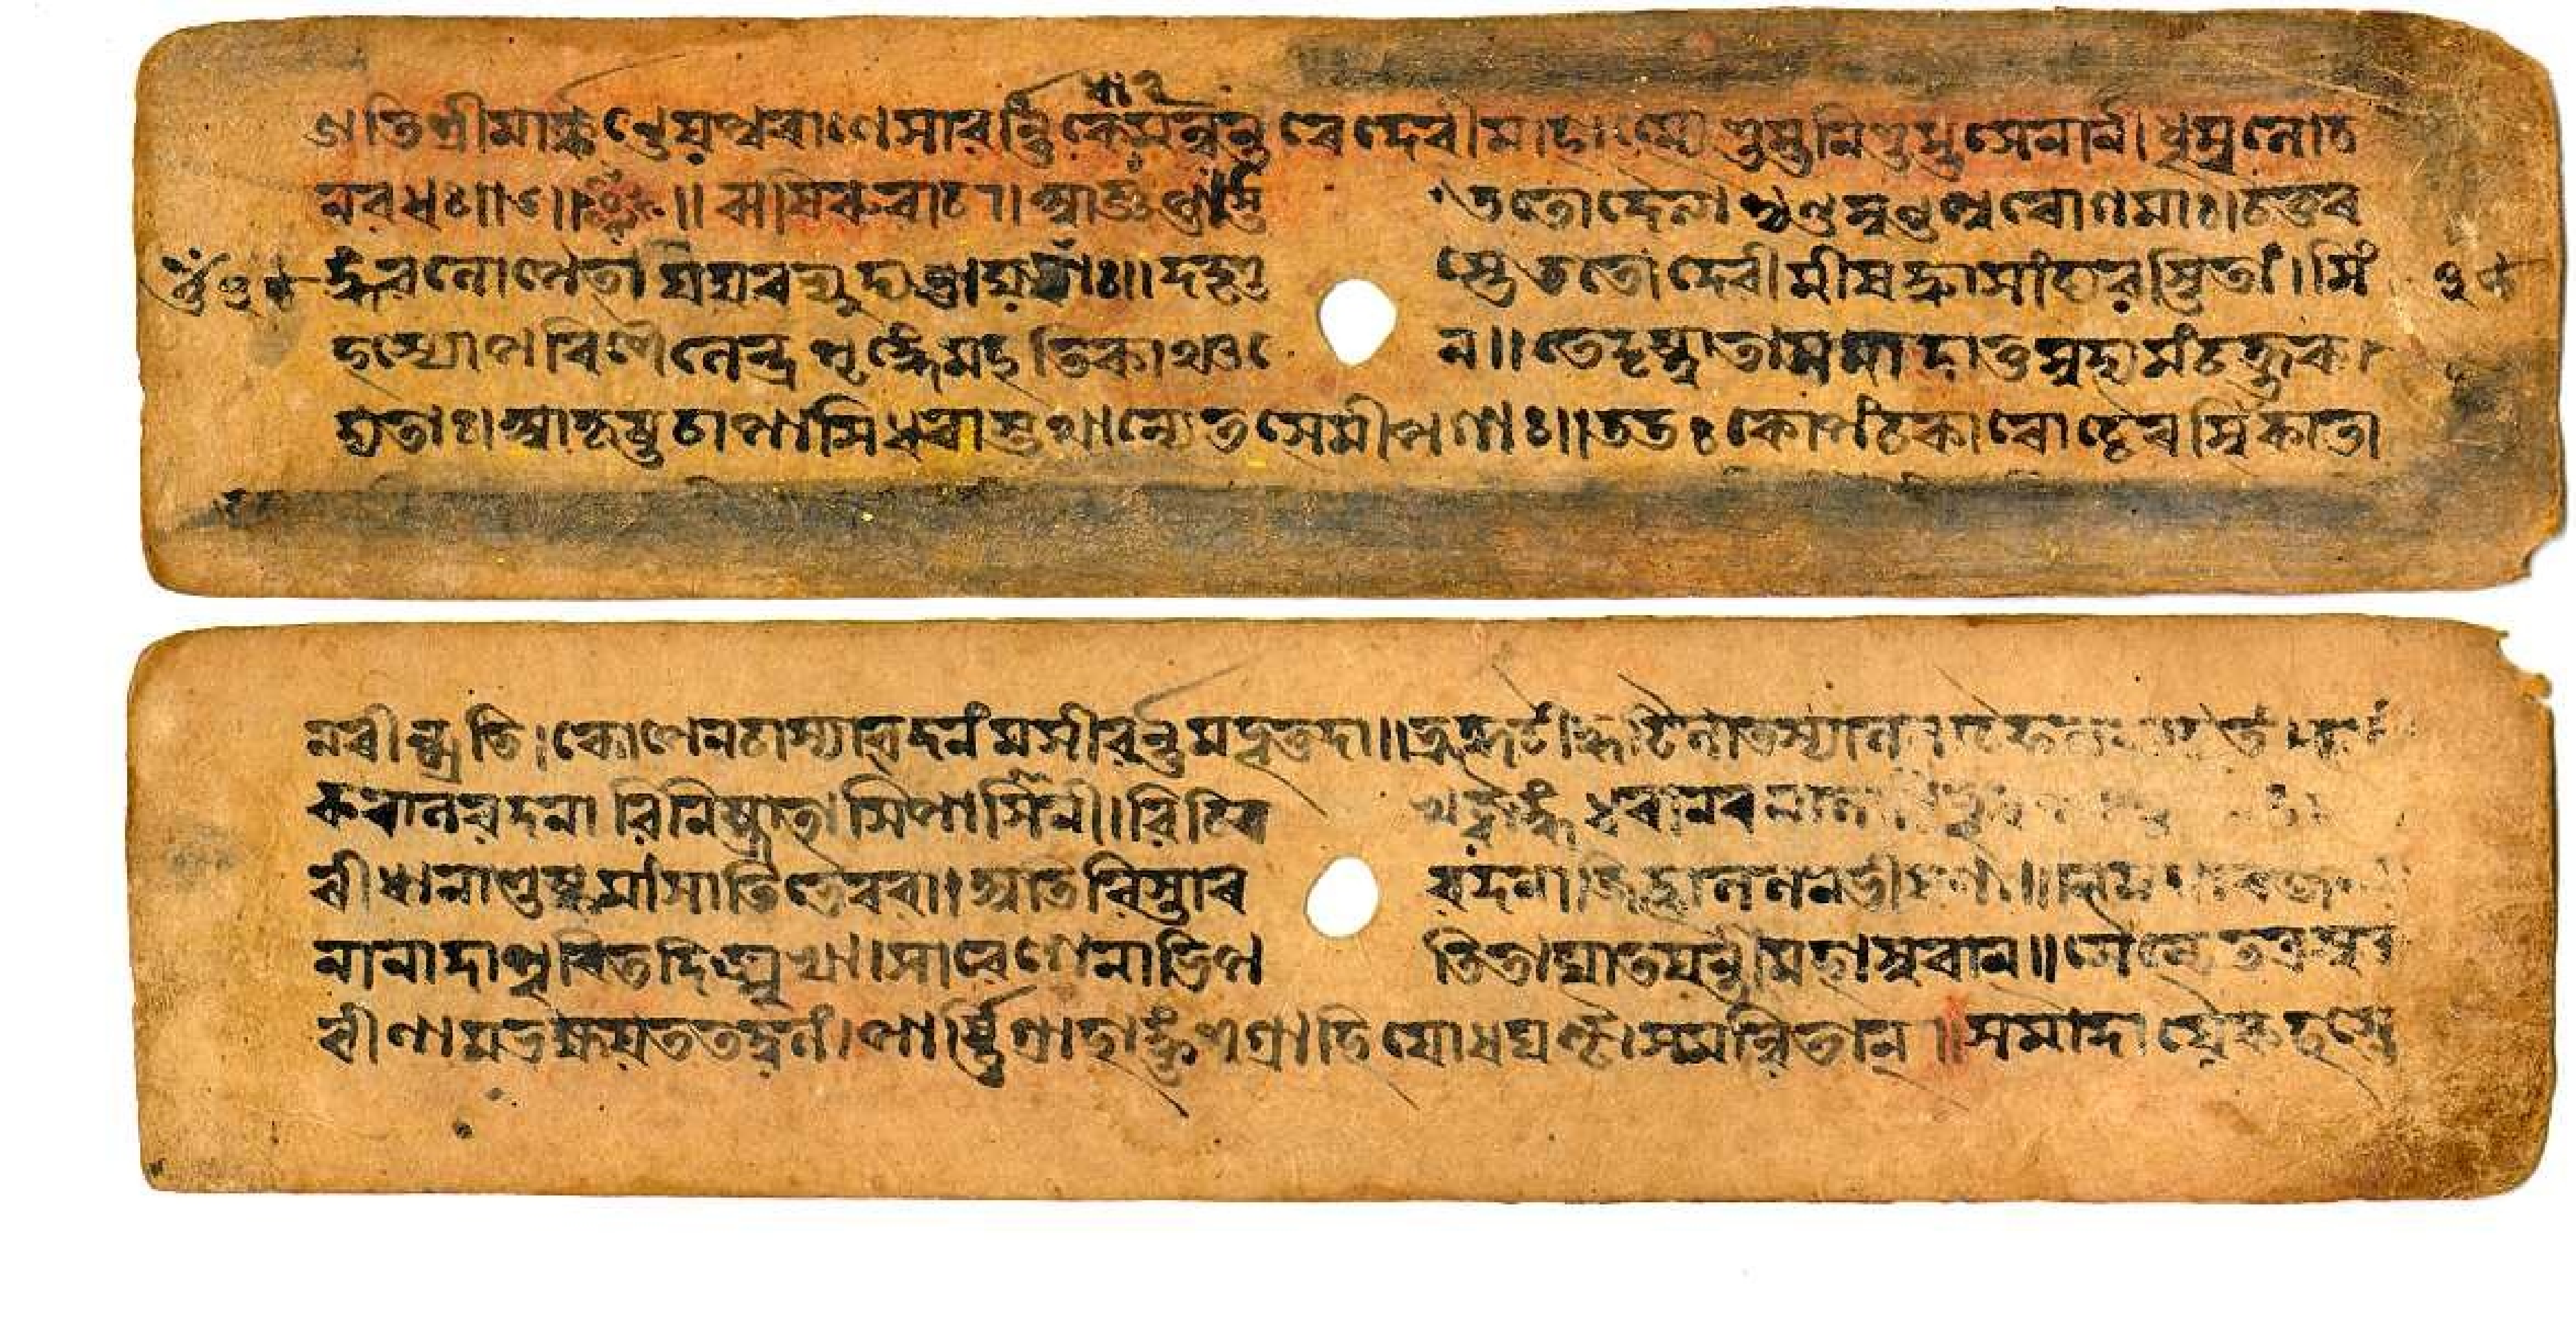 ইতি শ্রীমার্ক্কণ্ডেয়পুৰাণে সাবর্ণ্ণিকে মন্বন্তৰে দেবীমাহাত্ম্যে শুম্ভনিশুম্ভসেনানী ধূম্রলোচ
নবধঃ॥৬॥ ॥ ঋষিৰুবাচ। আজ্ঞপ্তাস্তে ততো দৈত্যাশ্চণ্ডমুণ্ডপুৰোগমাঃ। চতুৰ
ঙ্গবলোপেতা যযুৰভ্যুদ্যতায়ুধাঃ॥ দদৃশুস্তে ততো দেবীমীষদ্ধাসাং ব্যবস্থিতাং। সিং
হস্যোপৰি শৈলেন্দ্রশৃঙ্গে মহতি কাঞ্চনে॥ তে দৃষ্ট্বা তাং সমাদাতুমুদ্যমং চক্রুৰু
দ্যতাঃ। আকৃষ্টচাপাসিধৰাস্তথান্যে তৎসমীপগাঃ॥ ততঃ কোপং চকাৰোচ্চৈৰম্বিকা তা
নৰীন্প্রতি। কোপেন চাস্যা বদনং মসীবর্ণ্ণমভূত্তদা॥ ভ্রুকুটীকুটিলাত্তস্যা
কৰালবদনা বিনিষ্ক্রান্তাসিপাশিনী॥ বিচিত্রখট্বাঙ্গধৰা নৰমালা
ৰীধানা শুষ্কমাংসাতিভৈৰবা। অতিবিস্তাৰবদনা জিহ্বাললনভীষণা॥
না নাদাপূৰিতদিঙ্মুখা। সা বেগেনাভিপতিতা ঘাতয়ন্তী মহাসুৰান্॥ সৈন্যে তত্র সুৰ
ৰীণামভক্ষয়ত তদ্বলং। পার্ষ্ণিগ্রাহাঙ্কুশগ্রাহিযোধঘণ্টাসমন্বিতান্॥ সমাদায়ৈকহস্তে